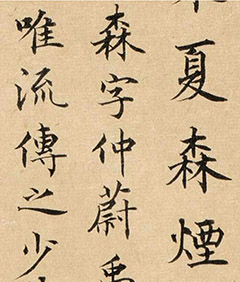 夏森煙
森字仲蔚禹
唯流傳之少